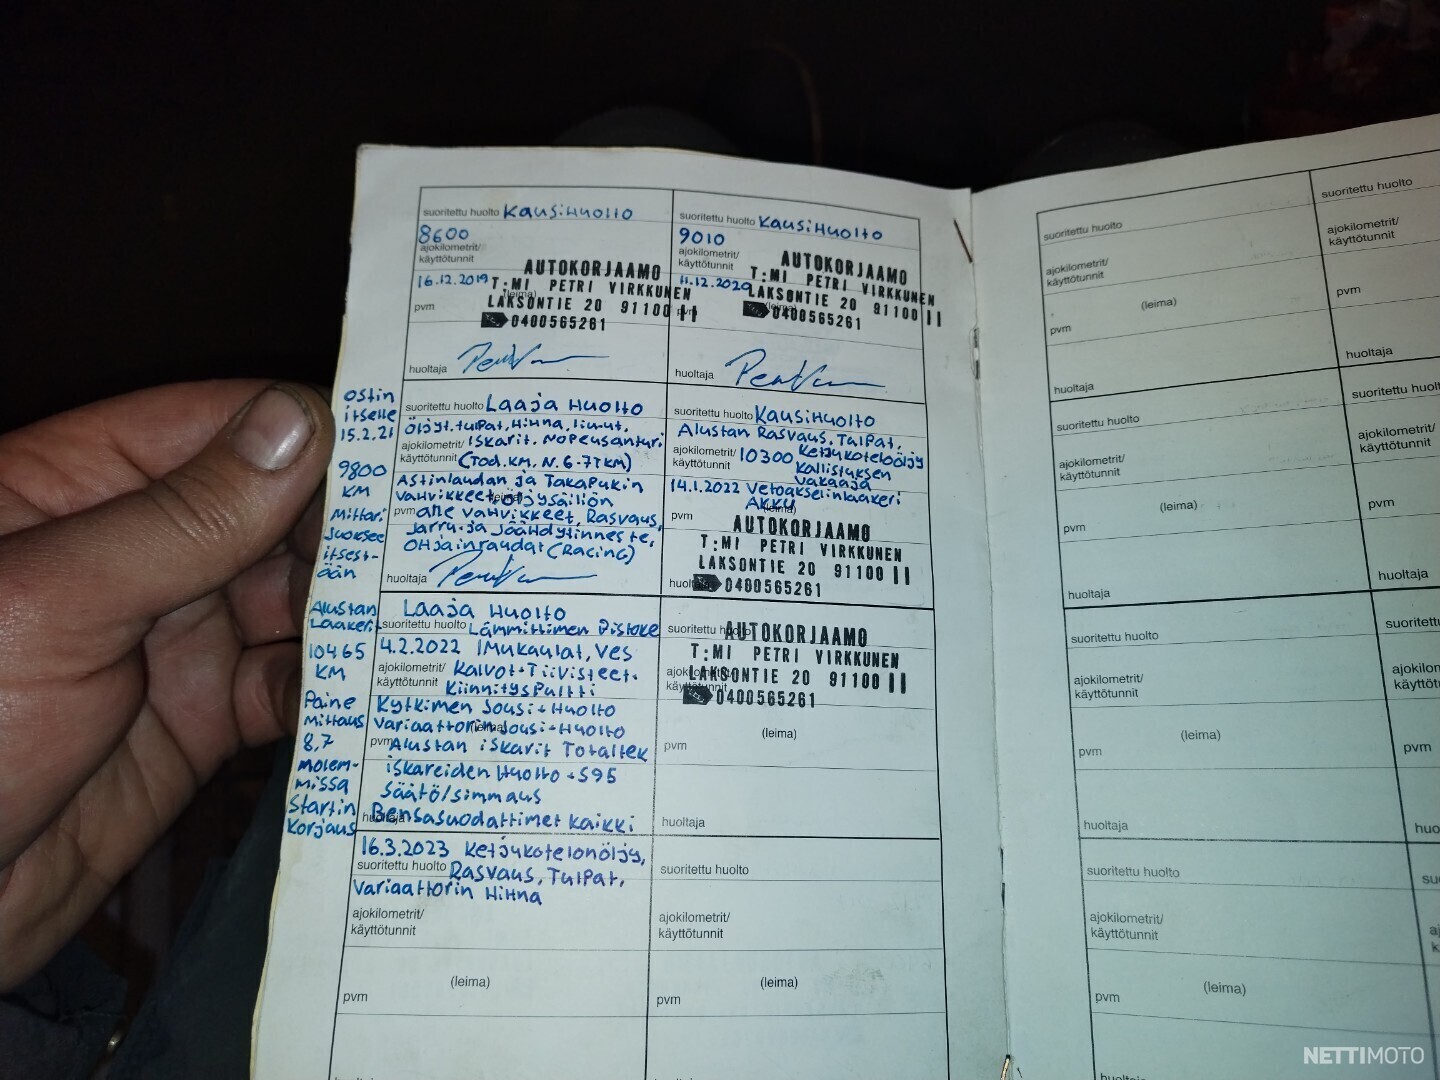 suoritettu huolto KausiHuolto
8600
ajokilometrit/
käyttötunnit
16.12.2019
AUTOKORJAAMO
T:MI PETRI VIRKKUNEN
(leima)
LAKSONTIE 20 91100 II
0400565261
pvm
huoltaja
suoritettu huolto KausiHuolto
9010
ajokilometrit/
käyttötunnit
11.12.2020
AUTOKORJAAMO
T:MI PETRI VIRKKUNEN
LAKSONTIE 20 91100 II
(leima)
0400565261
pvm
huoltaja
ostin
itselle
15.2.21
9800
KM
Mittari
Juoksee
itsest-
ään
suoritettu huolto Laaja Huolto
Öljyt, tulpat, Hihna, liu-ut,
ajokilometrit/ Iskarit. Nopeusanturi
käyttötunnit (Tod. KM. N. 6-7TKM)
Astinlaudan ja Takapukin
vahvikkeet, öljysäiliön
(leima)
pvm alle vahvikkeet, Rasvaus,
Jarru- ja jäähdytinneste,
OHjainraudat (Racing)
huoltaja
suoritettu huolto KausiHuolto
Alustan Rasvaus, Tulpat,
ajokilometrit/ 10300 Ketjukoteloöljy
käyttötunnit Kallistuksen
Vakaaja
14.1.2022 Vetoakselinlaakeri
AKKU
(leima)
pvm
AUTOKORJAAMO
T:MI PETRI VIRKKUNEN
LAKSONTIE 20 91100 II
huoltaja 0400565261
Alustan
Laakerit
10465
KM
Paine
Mittaus
8,7
molem-
missa
Startin
Korjaus
Laaja Huolto
suoritettu huolto Lämmittimen Pistoke
4.2.2022 IMukaulat, Ves
ajokilometrit/ Kalvot+Tiivisteet.
käyttötunnit Kiinnityspultti
Kytkimen Jousi+Huolto
variaattorin Jousi+Huolto
(leima)
pvm Alustan iskarit Totaltek
iskareiden Huolto + S95
säätö/simmaus
huoltaja Bensasuodattimet kaikki
suoritettu huolto
AUTOKORJAAMO
T:MI PETRI VIRKKUNEN
ajokilometrit/
LAKSONTIE 20 91100 II
käyttötunnit
0400565261
(leima)
pvm
huoltaja
16.3.2023 Ketjukotelonöljy,
suoritettu huolto Rasvaus, Tulpat,
variaattorin Hihna
ajokilometrit/
käyttötunnit
(leima)
pvm
suoritettu huolto
ajokilometrit/
käyttötunnit
(leima)
pvm
suoritettu huolto
ajokilometrit/
käyttötunnit
(leima)
pvm
huoltaja
suoritettu huolto
ajokilometrit/
käyttötunnit
pvm
huoltaja
suoritettu huolto
ajokilometrit/
käyttötunnit
(leima)
pvm
huoltaja
suoritettu huolto
ajokilometrit/
käyttötunnit
pvm
huoltaja
suoritettu huolto
ajokilometrit/
käyttötunnit
(leima)
pvm
huoltaja
pvm
suoritettu huolto
ajokilometrit/
käyttötunnit
(leima)
pvm
NETTIMOTO